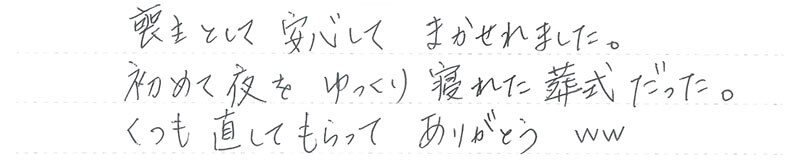 喪主として 安心して まかせれました。
初めて夜を ゆっくり 寝れた 葬式 だった。
くつも 直してもらって ありがとう ww